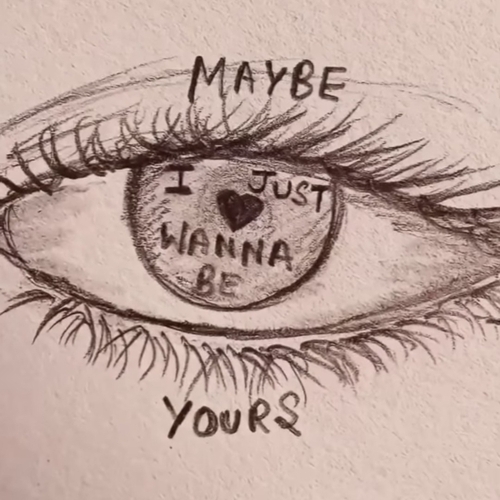 MAYBE
I JUST
WANNA
BE
YOURS